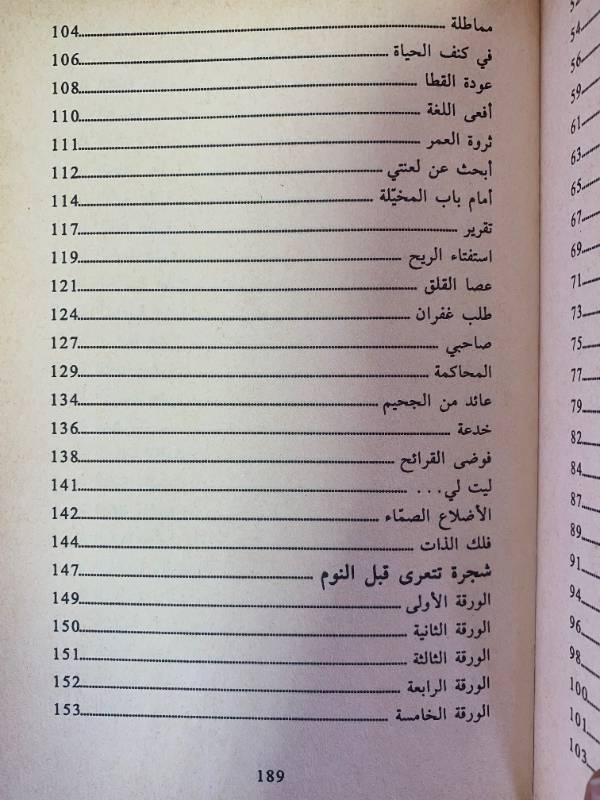 مماطلة 104
في كنف الحياة 106
عودة القطا 108
أفعى اللغة 110
ثروة العمر 111
أبحث عن لعنتي 112
أمام باب المخيّلة 114
تقرير 117
استفتاء الريح 119
عصا القلق 121
طلب غفران 124
صاحبي 127
المحاكمة 129
عائد من الجحيم 134
خدعة 136
فوضى القرائح 138
ليت لي... 141
الأضلاع الصمّاء 142
فلك الذات 144
شجرة تتعرى قبل النوم 147
الورقة الأولى 149
الورقة الثانية 150
الورقة الثالثة 151
الورقة الرابعة 152
الورقة الخامسة 153
189
54
56
59
61
63
65
67
69
71
73
75
77
79
82
84
87
89
91
94
96
98
100
101
103